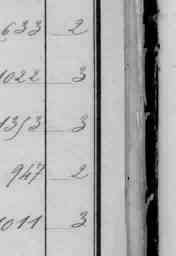 633 2
1022 3
1353 3
947 2
1011 3